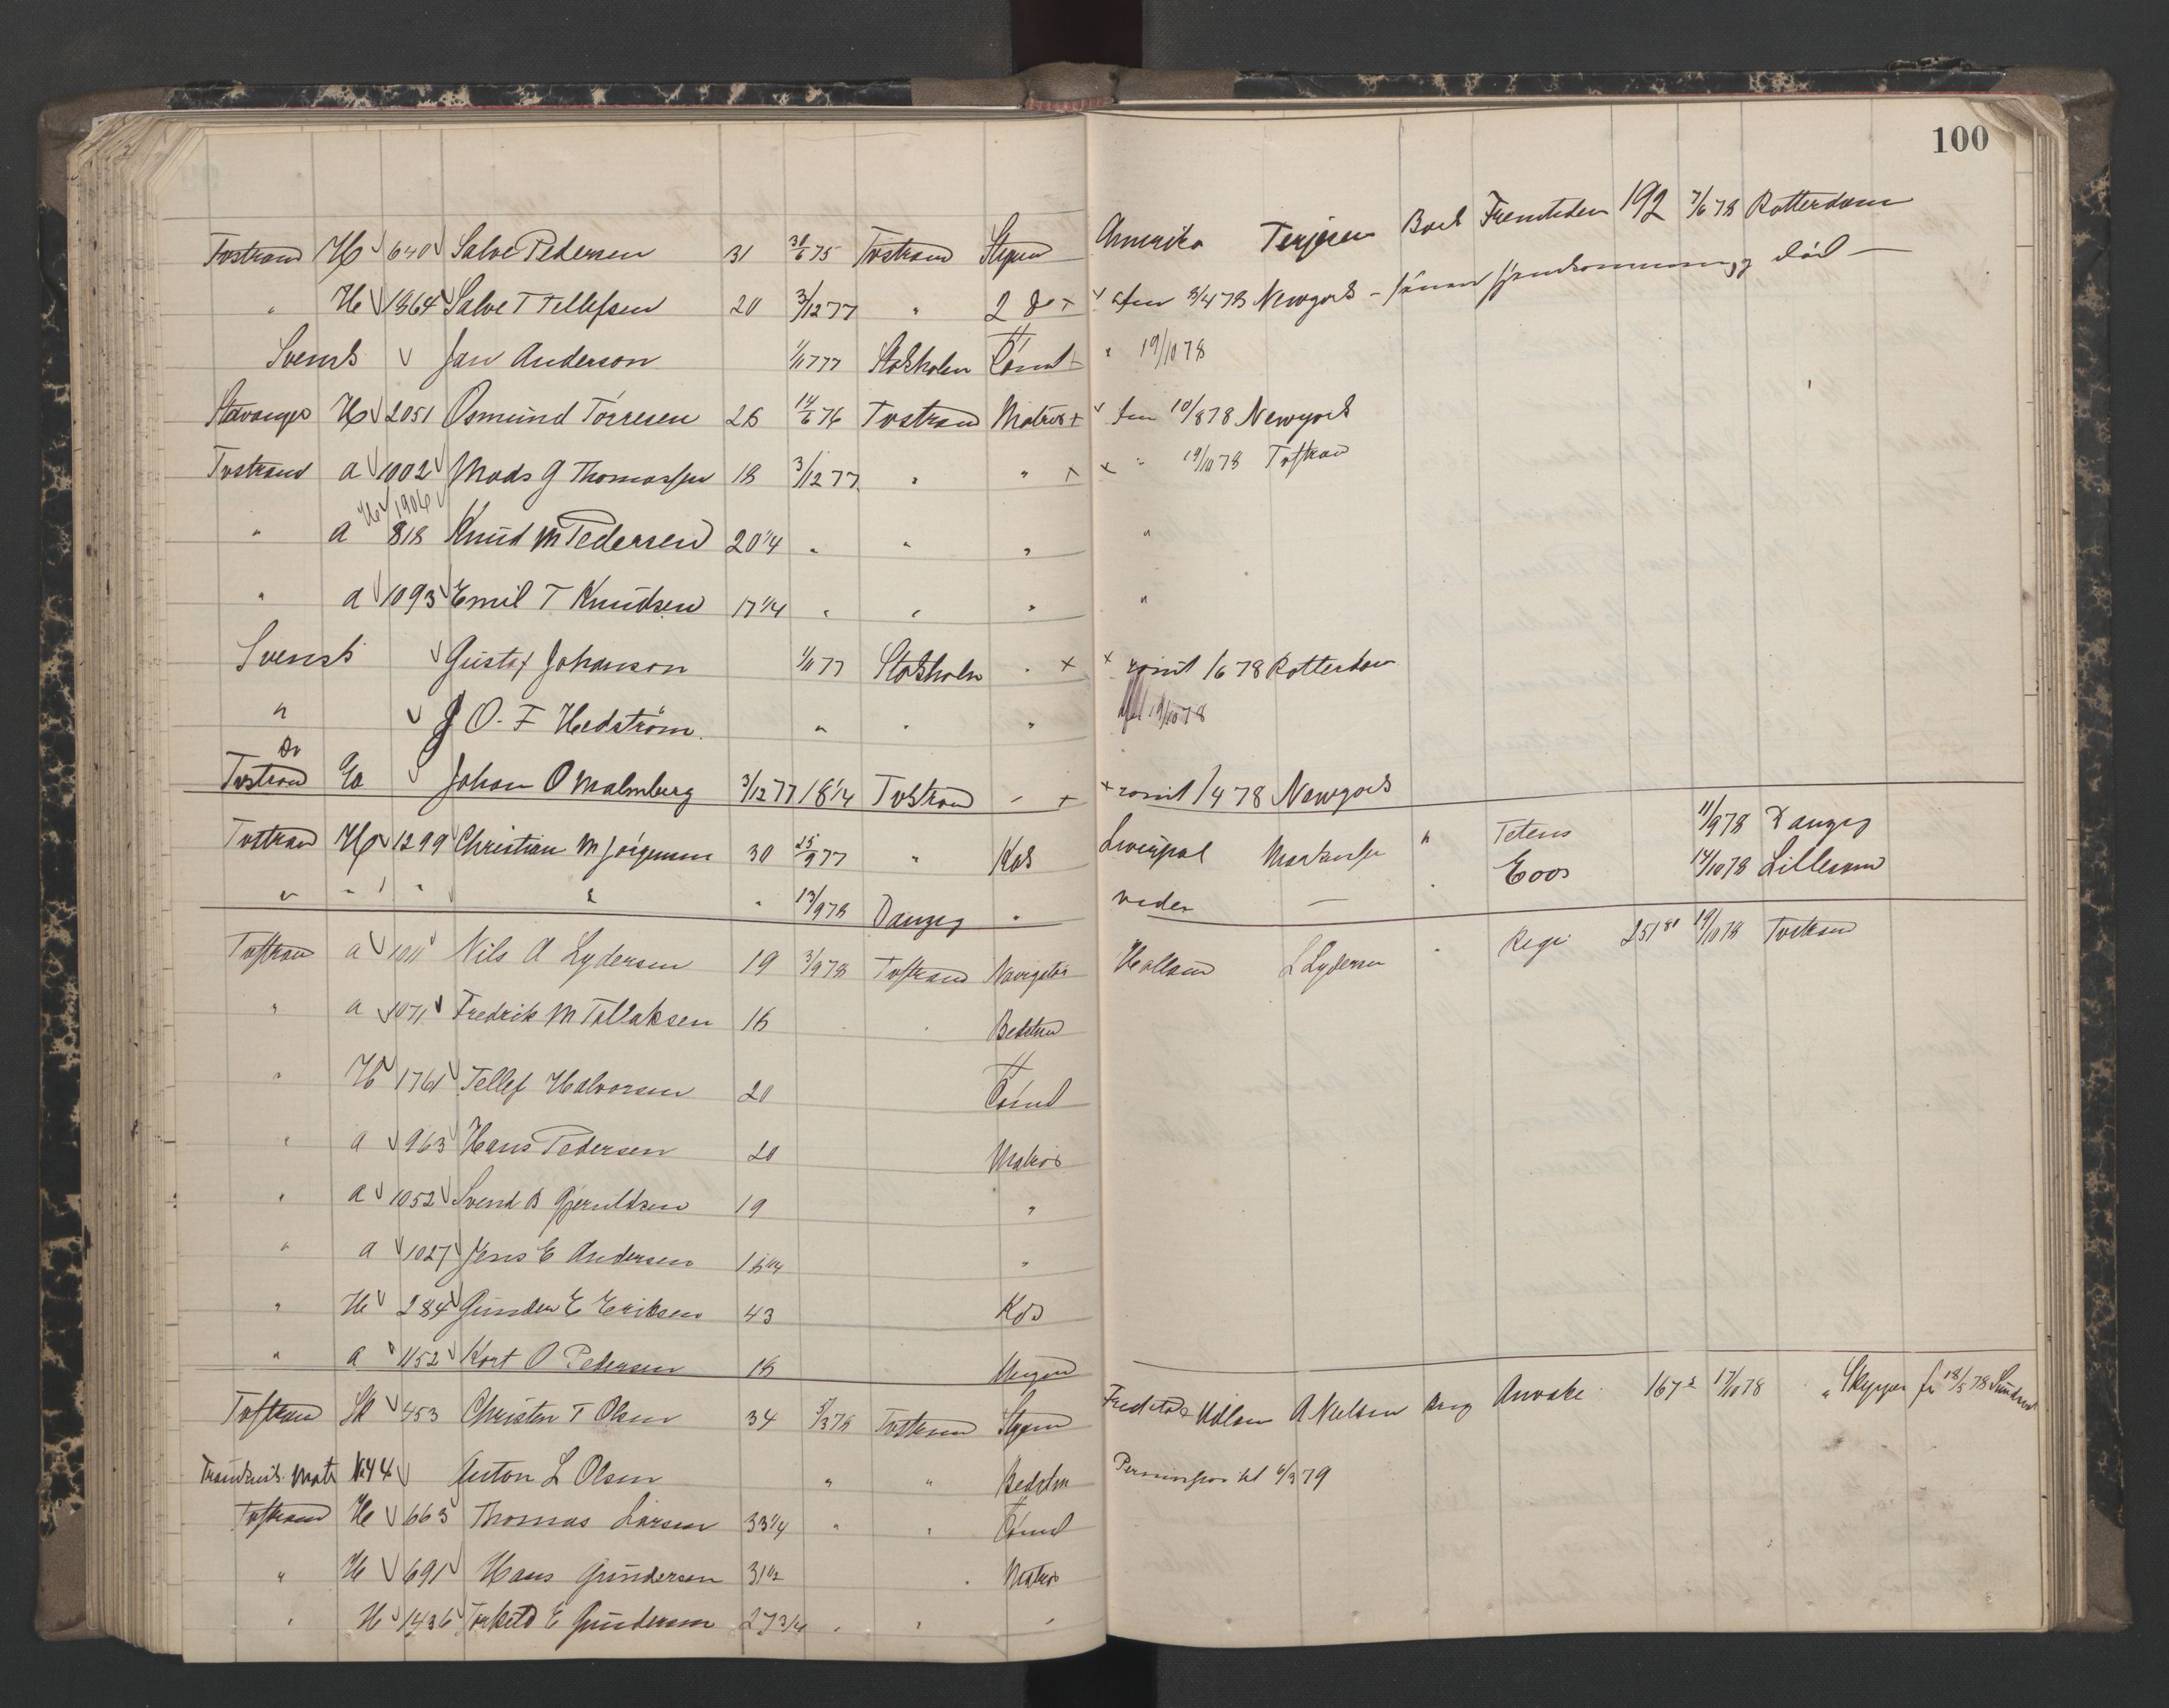 100
Tvstrand H 640 Salve Pedersen 31 30/6 75 Tvstrand Styrm Amerika Terjesen Bark Fremtiden 192 7/6 78 Rotterdam
" H 1864 Salve T Tellefsen 20 3/12 77 " 2 Do + 3/4 78 Newyork død
Svensk Jan Anderson 1/11 77 Stokholm Tömd 19/10 78
Stavanger H 2051 Osmund Torresen 26 14/6 76 Tvstrand Matros + 10/8 78 Newyork
Tvstrand a 1002 Mads G Thomassen 18 3/12 77 " " + + " 19/10 78 Tvstrand
H 1906
" a 818 Knud M Pedersen 20 1/4 " " " "
" a 1093 Emil T Knudsen 17 1/4 " " " "
Svensk Gustaf Johanson 1/11 77 Stokholm " + + römt 1/6 78 Rotterdam
" J O. F Hedström " " " 19/10 78
Do
Tvstrand Ex Johan O Malmberg 3/12 77 18 1/4 Tvstrand " + + römt 1/4 78 Newyork
Tvstrand H 1299 Christian M Jörgensen 30 25/9 77 " Kok Liverpool " Tetens 11/9 78 Danzig
" " " " " 13/9 78 Danzig " videre — " Eoos 14/10 78 Lillesand
Tvstrand a 1011 Nils A Lydersen 19 3/9 78 Tvstrand Navigatör Holland L Lydersen " Regi 251 81 19/10 78 Tvstrand
" a 1071 Fredrik M Tallaksen 16 " " Bedstm
" H 1761 Tellef Halvorsen 20 Tömd
" a 963 Hans Pedersen 20 Matros
" a 1052 Svend B Gjeruldsen 19 "
" a 1027 Jens E Andersen "
" H 284 Gunder E Eriksen 43 Kok
" a 1152 Kort O Pedersen 16
Tvstrand Sk 453 Christen T Olsen 34 5/3 78 Tvstrand Styrm Fredrikst A Nielsen Brig 167 17/10 78 Skipper fr 18/5 78
Matr N 44 Anton L Olsen " " Bedstm Permission til 6/3 79
Tvstrand H 663 Thomas Larsen 33 1/4 " " Tömd
" H 691 Hans Gundersen 31 1/2 " Matros
" H 1436 Torkeld E Gundersen 27 3/4 " " "